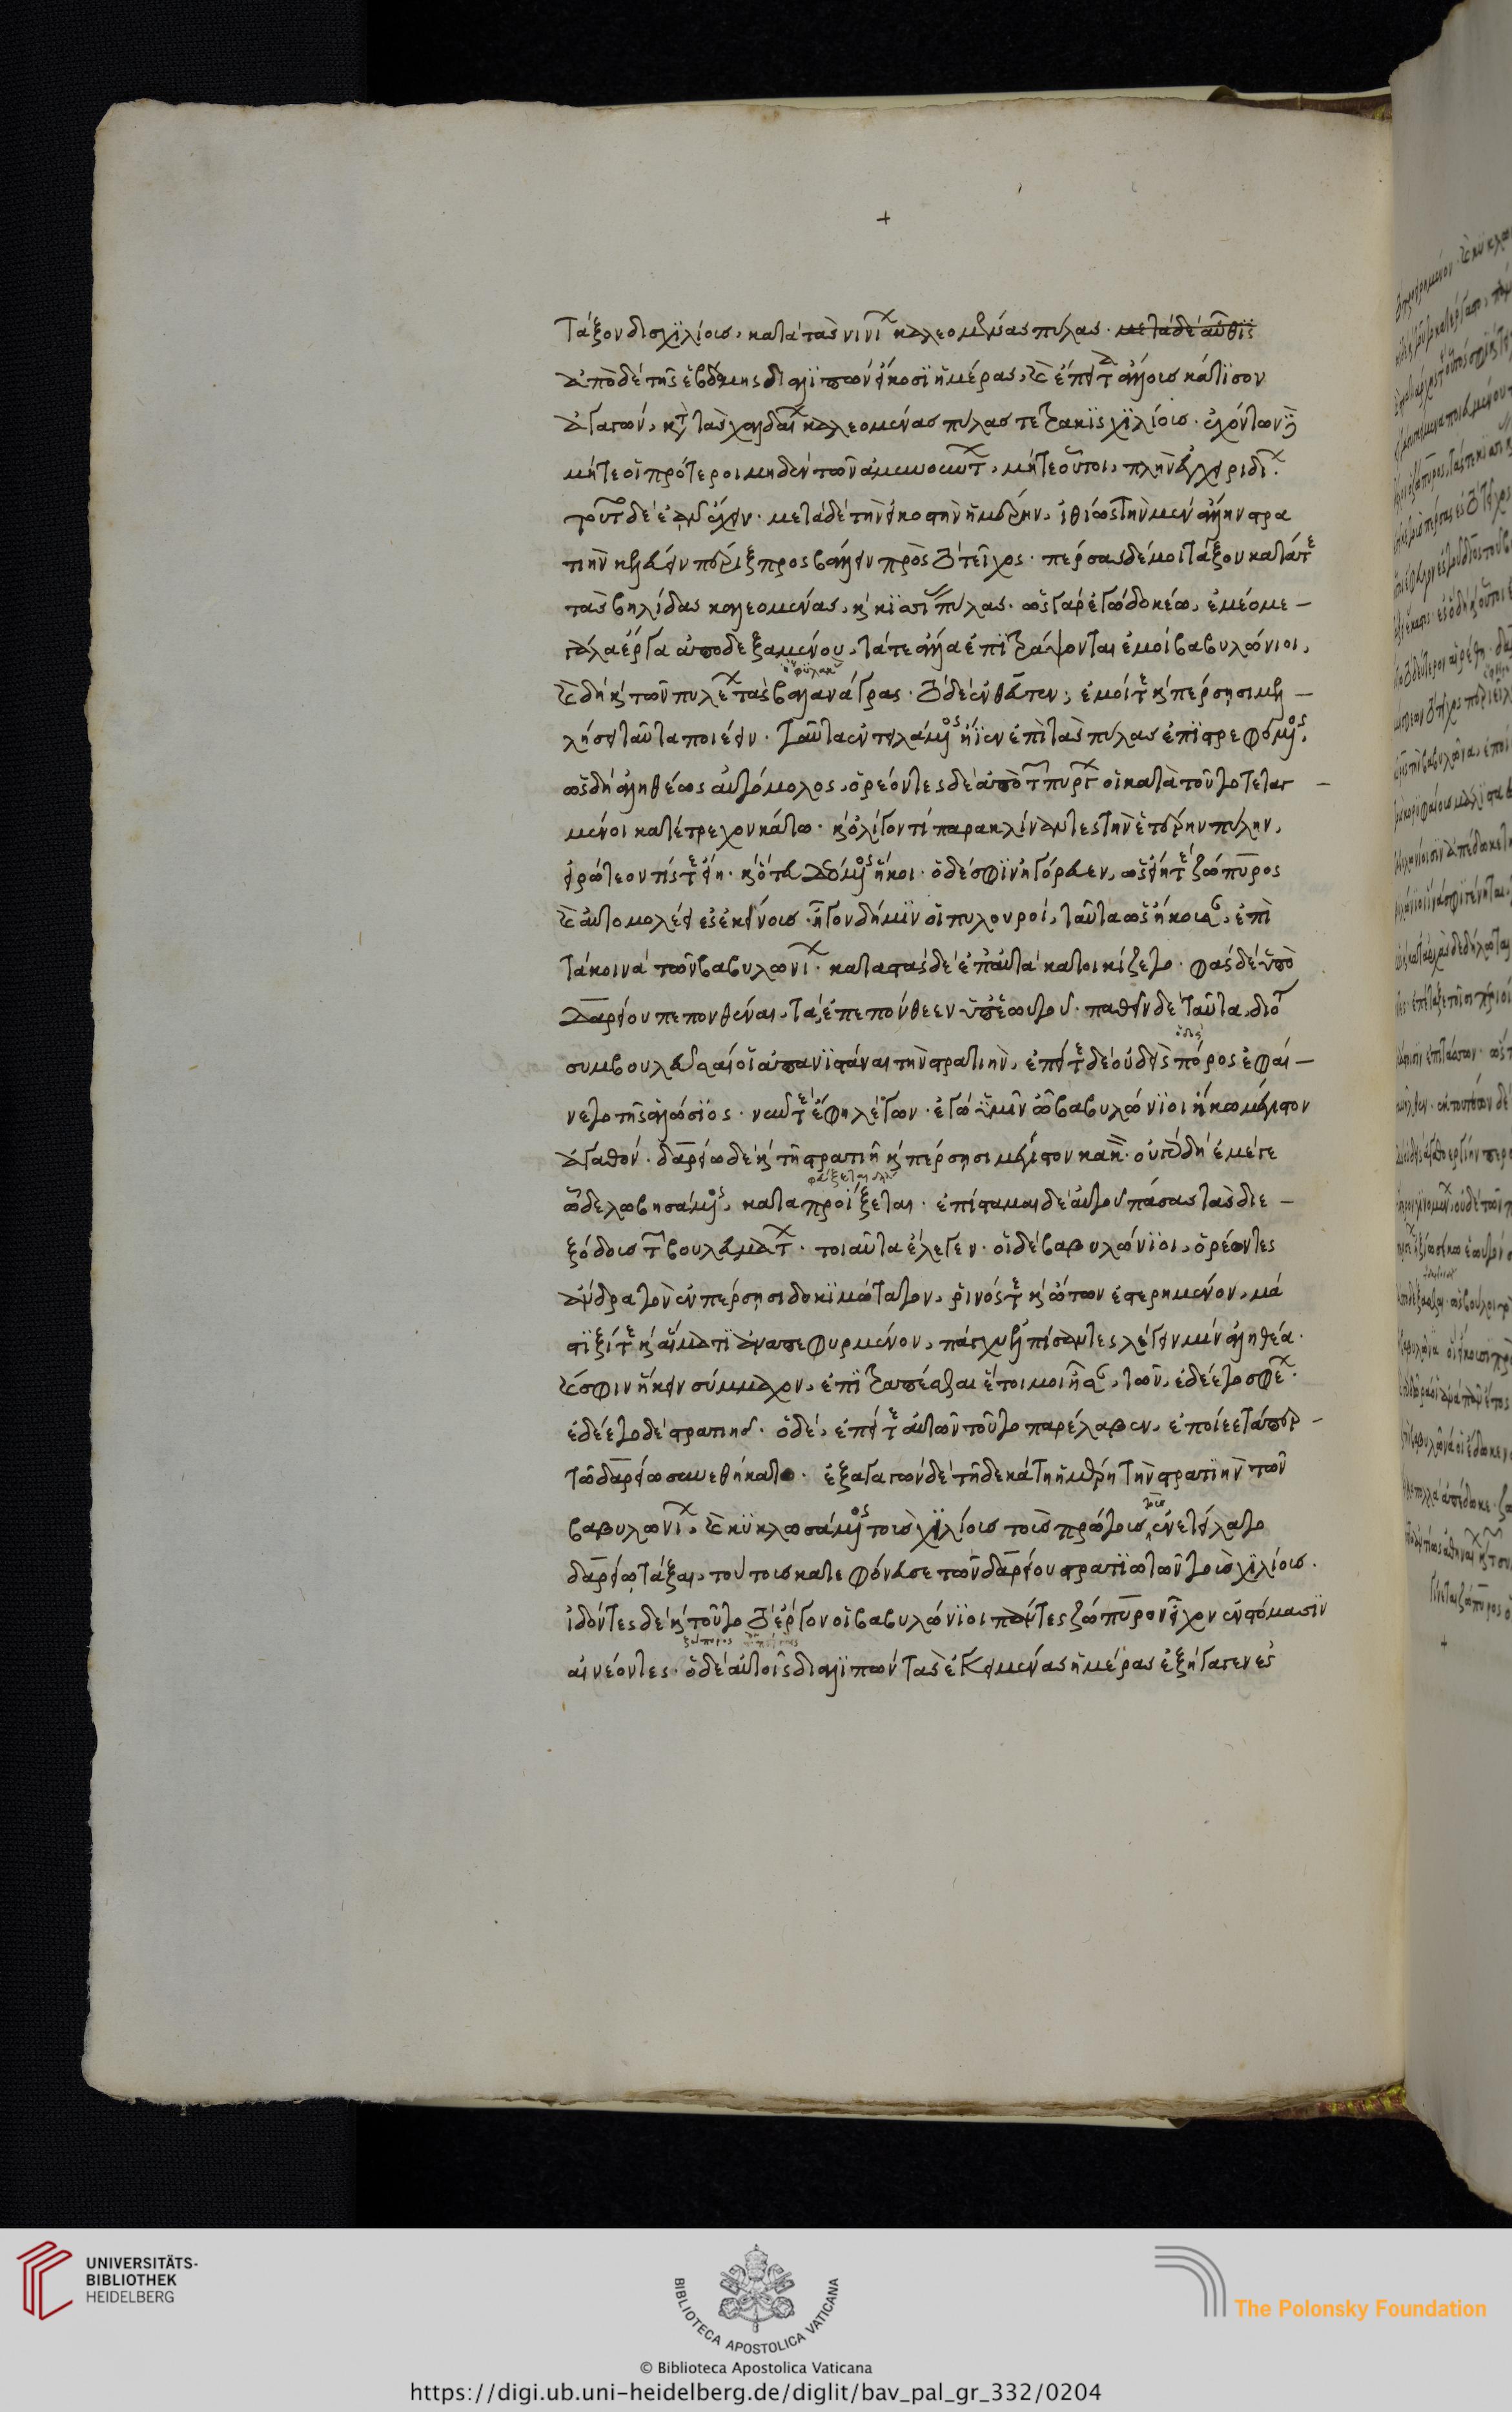 +
τάξον δισχϊλίους, κατὰ τὰς νινί καλεομένας πύλας. μετὰ δὲ αὖθις
ἀπὸ δὲ τῆς ἑβδόμης διαλϊπὼν εἴκοσϊ ἡμέρας, καὶ ἔπειτα ἄλλους κάτϊσον
ἀγαγών, κατὰ τὰς χαλδαί καλεομένας πύλας τετρακϊσχϊλίους. ἐχόντων δὲ
μήτε οἱ πρότεροι μηδὲν τῶν ἀμυνούντ, μήτε οὗτοι, πλὴν ἐγχειριδί.
τοῦτο δὲ ἐᾶν ἔχειν. μετὰ δὲ τὴν εἰκοστὴν ἡμέρην, ἰθέως τὴν μὲν ἄλλην στρα
τιὴν κελεύειν πέριξ προσβάλλειν πρὸς τὸ τεῖχος. πέρσας δέ μοι τάξον κατά τε
τὰς βηλίδας καλεομένας, καὶ κϊσσί πύλας. ὡς γὰρ ἐγὼ δοκέω, ἐμέο με –
γάλα ἔργα ἀποδεξαμένου, τά τε ἄλλα ἐπιτρέψονται ἐμοὶ βαβυλώνιοι,
καὶ δὴ καὶ τῶν πυλέ τὰς βαλανάγρας. τὸ δὲ ἐνθεῦτεν, ἐμοί τε καὶ πέρσῃσι με –
λήσει ταῦτα ποιέειν. ταῦτα ἐντειλάμενος ἤϊεν ἐπὶ τὰς πύλας ἐπϊστρεφόμενος
ὡς δὴ ἀληθέως αὐτόμολος, ὁρέοντες δὲ ἀπὸ τῶν πύργ οἱ κατὰ τοῦτο τεταγ –
μένοι κατέτρεχον κάτω. καὶ ὀλίγον τί παρακλίναντες τὴν ἑτέρην πύλην,
εἰρώτεον τίς τε εἴη. καὶ ὅτευ δεόμενος ἥκοι. ὁ δέ σφϊ ἠγόρευεν, ὡς εἴη τε ζώπυρος
καὶ αὐτομολέει ἐς ἐκείνους. ἦγον δή μϊν οἱ πυλουροί, ταῦτα ὡς ἤκουσαν, ἐπὶ
τὰ κοινὰ τῶν βαβυλωνί. καταστὰς δὲ ἐπ' αὐτὰ κατοικτίζετο. φὰς δὲ ὑπὸ
δαρείου πεπονθέναι, τὰ ἐπεπόνθεεν ὑπ' ἑωυτοῦ. παθεῖν δὲ ταῦτα, διότι
συμβουλεῦσαί οἱ ἀπανϊστάναι τὴν στρατιὴν, ἐπεί τε δὲ οὐδεὶς πόρος ἐφαί –
νετο τῆς ἁλώσϊος. νῦν τε ἔφη λέγων. ἐγὼ ὑμῖν ὦ βαβυλώνϊοι ἥκω μέγιστον
ἀγαθόν. δαρείῳ δὲ καὶ τῇ στρατιῇ καὶ πέρσῃσι μέγιστον κακ. οὐ γὰρ δὴ ἐμέ γε
ὧδε λωβησάμενος, καταπροΐξεται. ἐπίσταμαι δὲ αὐτοῦ πάσας τὰς διε –
ξόδους τῶν βουλευμάτ. τοιαῦτα ἔλεγεν. οἱ δὲ βαβυλώνϊοι, ὁρέοντες
ἄνδρα τὸν ἐν πέρσῃσι δοκϊμώτατον, ῥινός τε καὶ ὤτων ἐστερημένον, μά
στϊξί τε καὶ αἵματϊ ἀναπεφυρμένον, πάγχυ ἐλπίσαντες λέγειν μϊν ἀληθέα.
καί σφιν ἥκειν σύμμαχον, ἐπϊτράπεσθαι ἕτοιμοι ἦσαν, τῶν ἐδέετο σφέ.
ἐδέετο δὲ στρατιῆς. ὁ δὲ, ἐπεί τε αὐτῶν τοῦτο παρέλαβεν, ἐποίεε τάπερ –
τῷ δαρείῳ συνεθήκατο. ἐξαγαγὼν δὲ τῇ δεκάτῃ ἡμέρῃ τὴν στρατϊὴν τῶν
βαβυλωνί, καὶ κυκλωσάμενος τοὺς χϊλίους τοὺς πρώτους τοὺς ἐνετείλατο
δαρείῳ τάξαι, τούτους κατεφόνευσε τῶν δαρείου στρατϊωτῶν τοὺς χιλίους.
ἰδόντες δὲ καὶ τοῦτο τὸ ἔργον οἱ βαβυλώνϊοι πάντες ζώπυρον εἶχον ἐν στόμασϊν
αἰνέοντες. ὁ δὲ αὐτοῖς διαλϊπὼν τὰς συγκειμένας ἡμέρας ἐξήγαγεν ἐς
UNIVERSITÄTS-
BIBLIOTHEK
HEIDELBERG
BIBLIOTECA APOSTOLICA VATICANA
The Polonsky Foundation
© Biblioteca Apostolica Vaticana
https://digi.ub.uni-heidelberg.de/diglit/bav_pal_gr_332/0204